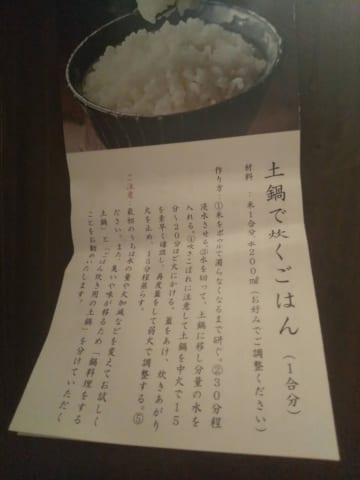 土鍋で炊くごはん（1合分）
材料：米1合分、水200ml（お好みでご調整ください）
作り方 ①米をボウルで濁らなくなるまで研ぐ。②30分程
浸水させる。③水を切って、土鍋に移し分量の水を
入れる。④吹きこぼれに注意して土鍋を中火で15
分～20分ほど火にかける。蓋をあけ、炊きあがり
を素早く確認し、再度蓋をして弱火で調整する。⑤
火を止め、15分程蒸らす。
ご注意：最初のうちは水の量や火加減などを変えてお試しく
ださい。また、臭いや味が移るため「鍋料理をする
土鍋」と「ごはん炊き用の土鍋」を分けていただく
ことをお勧めいたします。